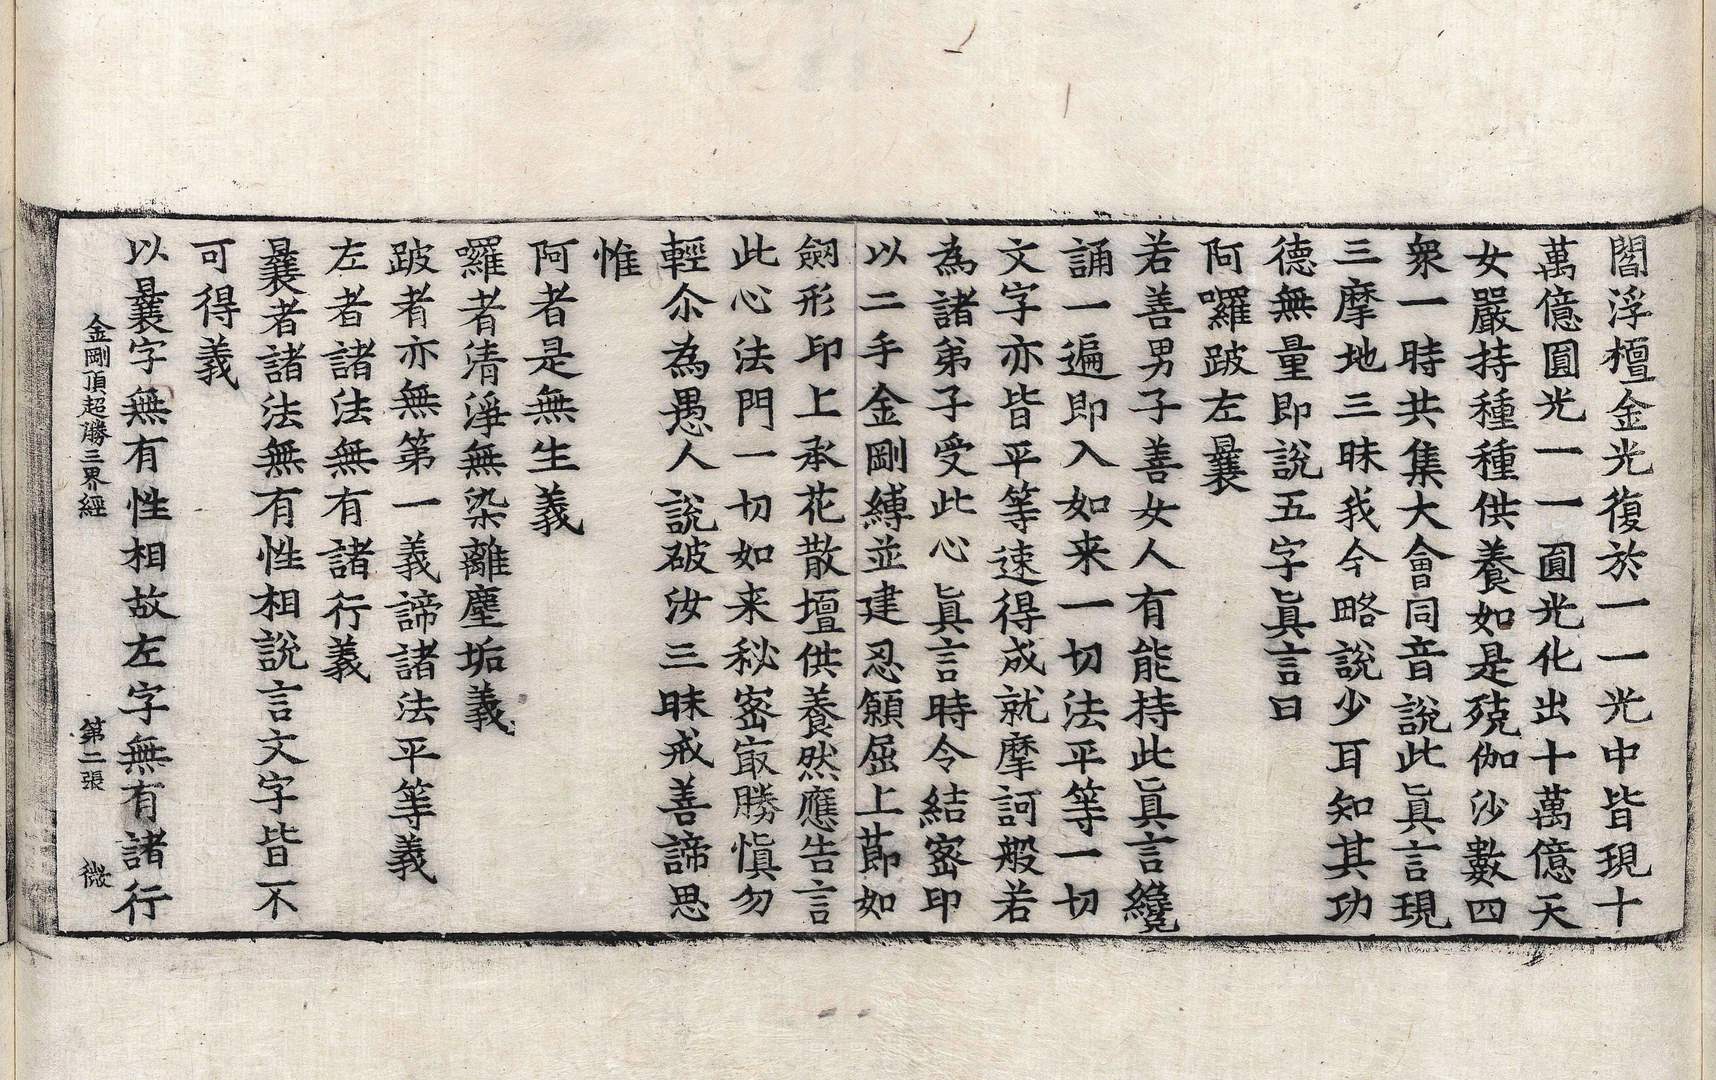 閻浮檀金光復於一一光中皆現十
萬億圓光一一圓光化出十萬億天
女嚴持種種供養如是殑伽沙數四
衆一時共集大會同音說此眞言現
三摩地三昧我今略說少耳知其功
德無量即說五字眞言曰
阿囉跛左曩
若善男子善女人有能持此眞言纔
誦一遍即入如来一切法平等一切
文字亦皆平等速得成就摩訶般若
為諸弟子受此心眞言時令結密印
以二手金剛縛並建忍願屈上莭如
劒形印上承花散壇供養然應告言
此心法門一切如来秘密㝡勝慎勿
輕尒為愚人說破汝三昧戒善諦思
惟
阿者是無生義
囉者清淨無染離塵垢義
跛者亦無第一義諦諸法平等義
左者諸法無有諸行義
曩者諸法無有性相說言文字皆不
可得義
以曩字無有性相故左字無有諸行
金剛頂超勝三界經　第二張　微